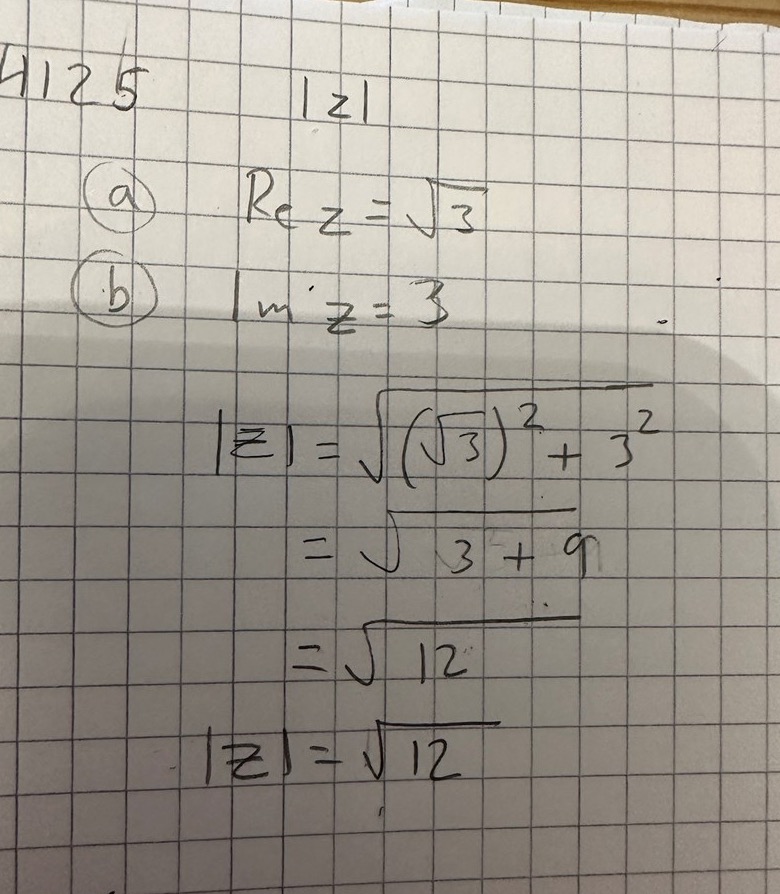 4125 |z|
(a) Re z = √3
(b) Im z = 3
|z| = √((√3)² + 3²)
= √(3 + 9)
= √12
|z| = √12